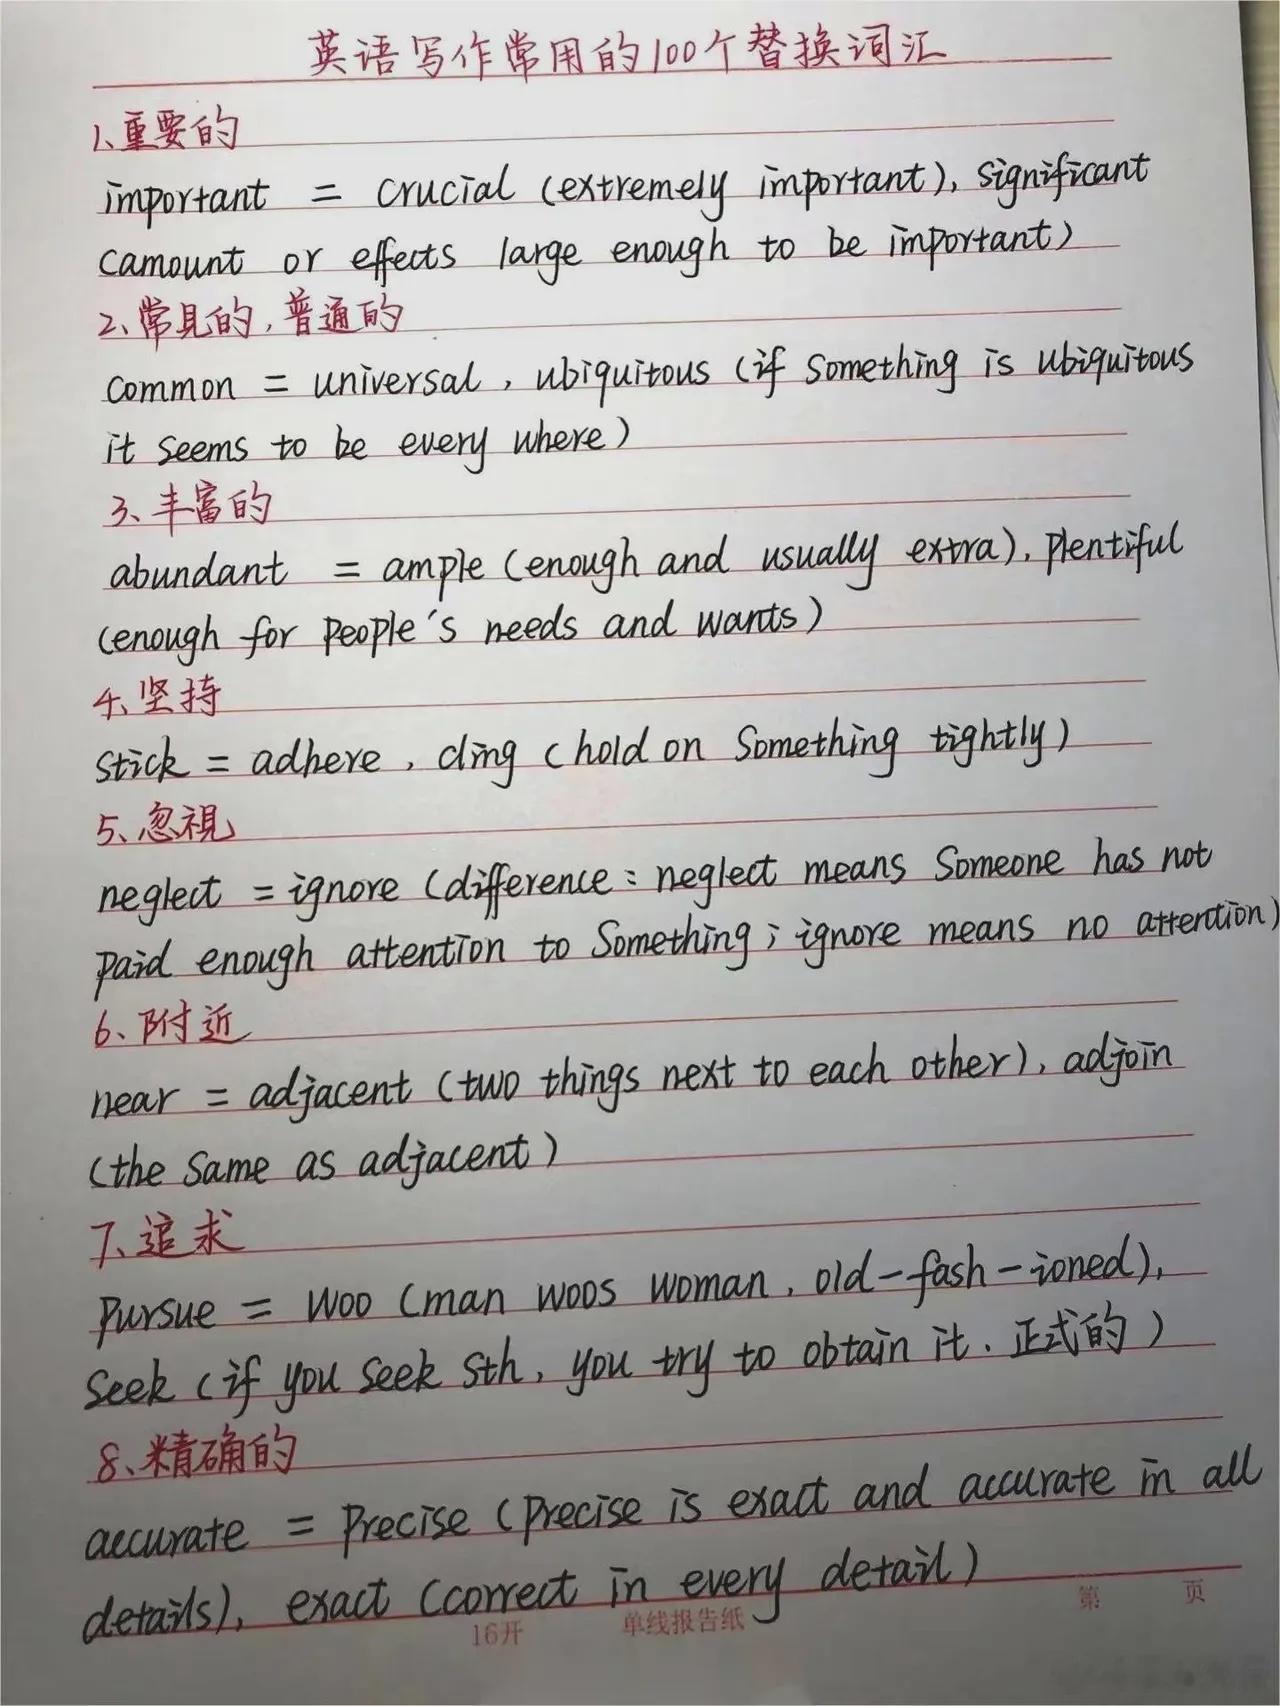 英语写作常用的100个替换词汇
1、重要的
important = crucial (extremely important), significant
camount or effects large enough to be important)
2、常见的,普通的
common = universal, ubiquitous (if something is ubiquitous
it seems to be every where)
3、丰富的
abundant = ample (enough and usually extra), plentiful
(enough for people's needs and wants)
4、坚持
stick = adhere, cling (hold on something tightly)
5、忽視
neglect = ignore (difference: neglect means someone has not
paid enough attention to something; ignore means no attention)
6、附近
near = adjacent (two things next to each other), adjoin
(the same as adjacent)
7、追求
pursue = woo (man woos woman, old-fash-ioned),
seek (if you seek sth, you try to obtain it. 正式的)
8、精确的
accurate = precise (precise is exact and accurate in all
details), exact (correct in every detail)
16开 单线报告纸 第 页